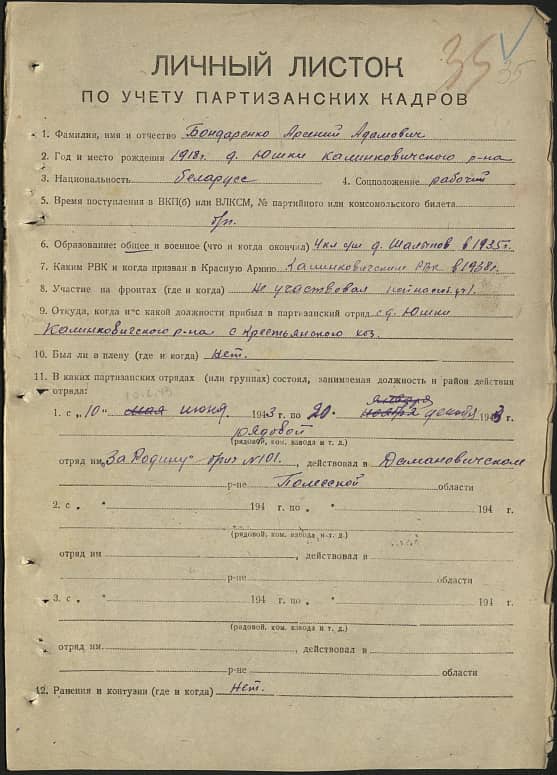 35
35
ЛИЧНЫЙ ЛИСТОК
ПО УЧЕТУ ПАРТИЗАНСКИХ КАДРОВ
1. Фамилия, имя и отчество Бондаренко Арсений Адамович
2. Год и место рождения 1918г. д. Юшки Калинковичского р-на
3. Национальность беларусс 4. Соцположение рабочий
5. Время поступления в ВКП(б) или ВЛКСМ, № партийного или комсомольского билета
б/п.
6. Образование: общее и военное (что и когда окончил) 4кл с/ш д. в 1935г.
7. Каким РВК и когда призван в Красную Армию Калинковичским РВК в 1938г.
8. Участие на фронтах (где и когда) Не участвовал
9. Откуда, когда и с какой должности прибыл в партизанский отряд с д. Юшки
Калинковичского р-на с Крестьянского хоз.
10. Был ли в плену (где и когда) Нет.
11. В каких партизанских отрядах (или группах) состоял, занимаемая должность и район действия
отряда:
января
1. с „10" мая июня 1943 г. по „20" ноября декабр 1943 г.
рядовой
(рядовой, ком. взвода и т. д.)
отряд им „За Родину" бриг №101, действовал в Домановичском
р-не Полесской области
2. с „ " 194 г. по „ " 194 г.
(рядовой, ком. взвода и т. д.)
отряд им , действовал в
р-не области
3. с „ " 194 г. по „ " 194 г.
(рядовой, ком. взвода и т. д.)
отряд им , действовал в
р-не области
12. Ранения и контузии (где и когда) Нет.